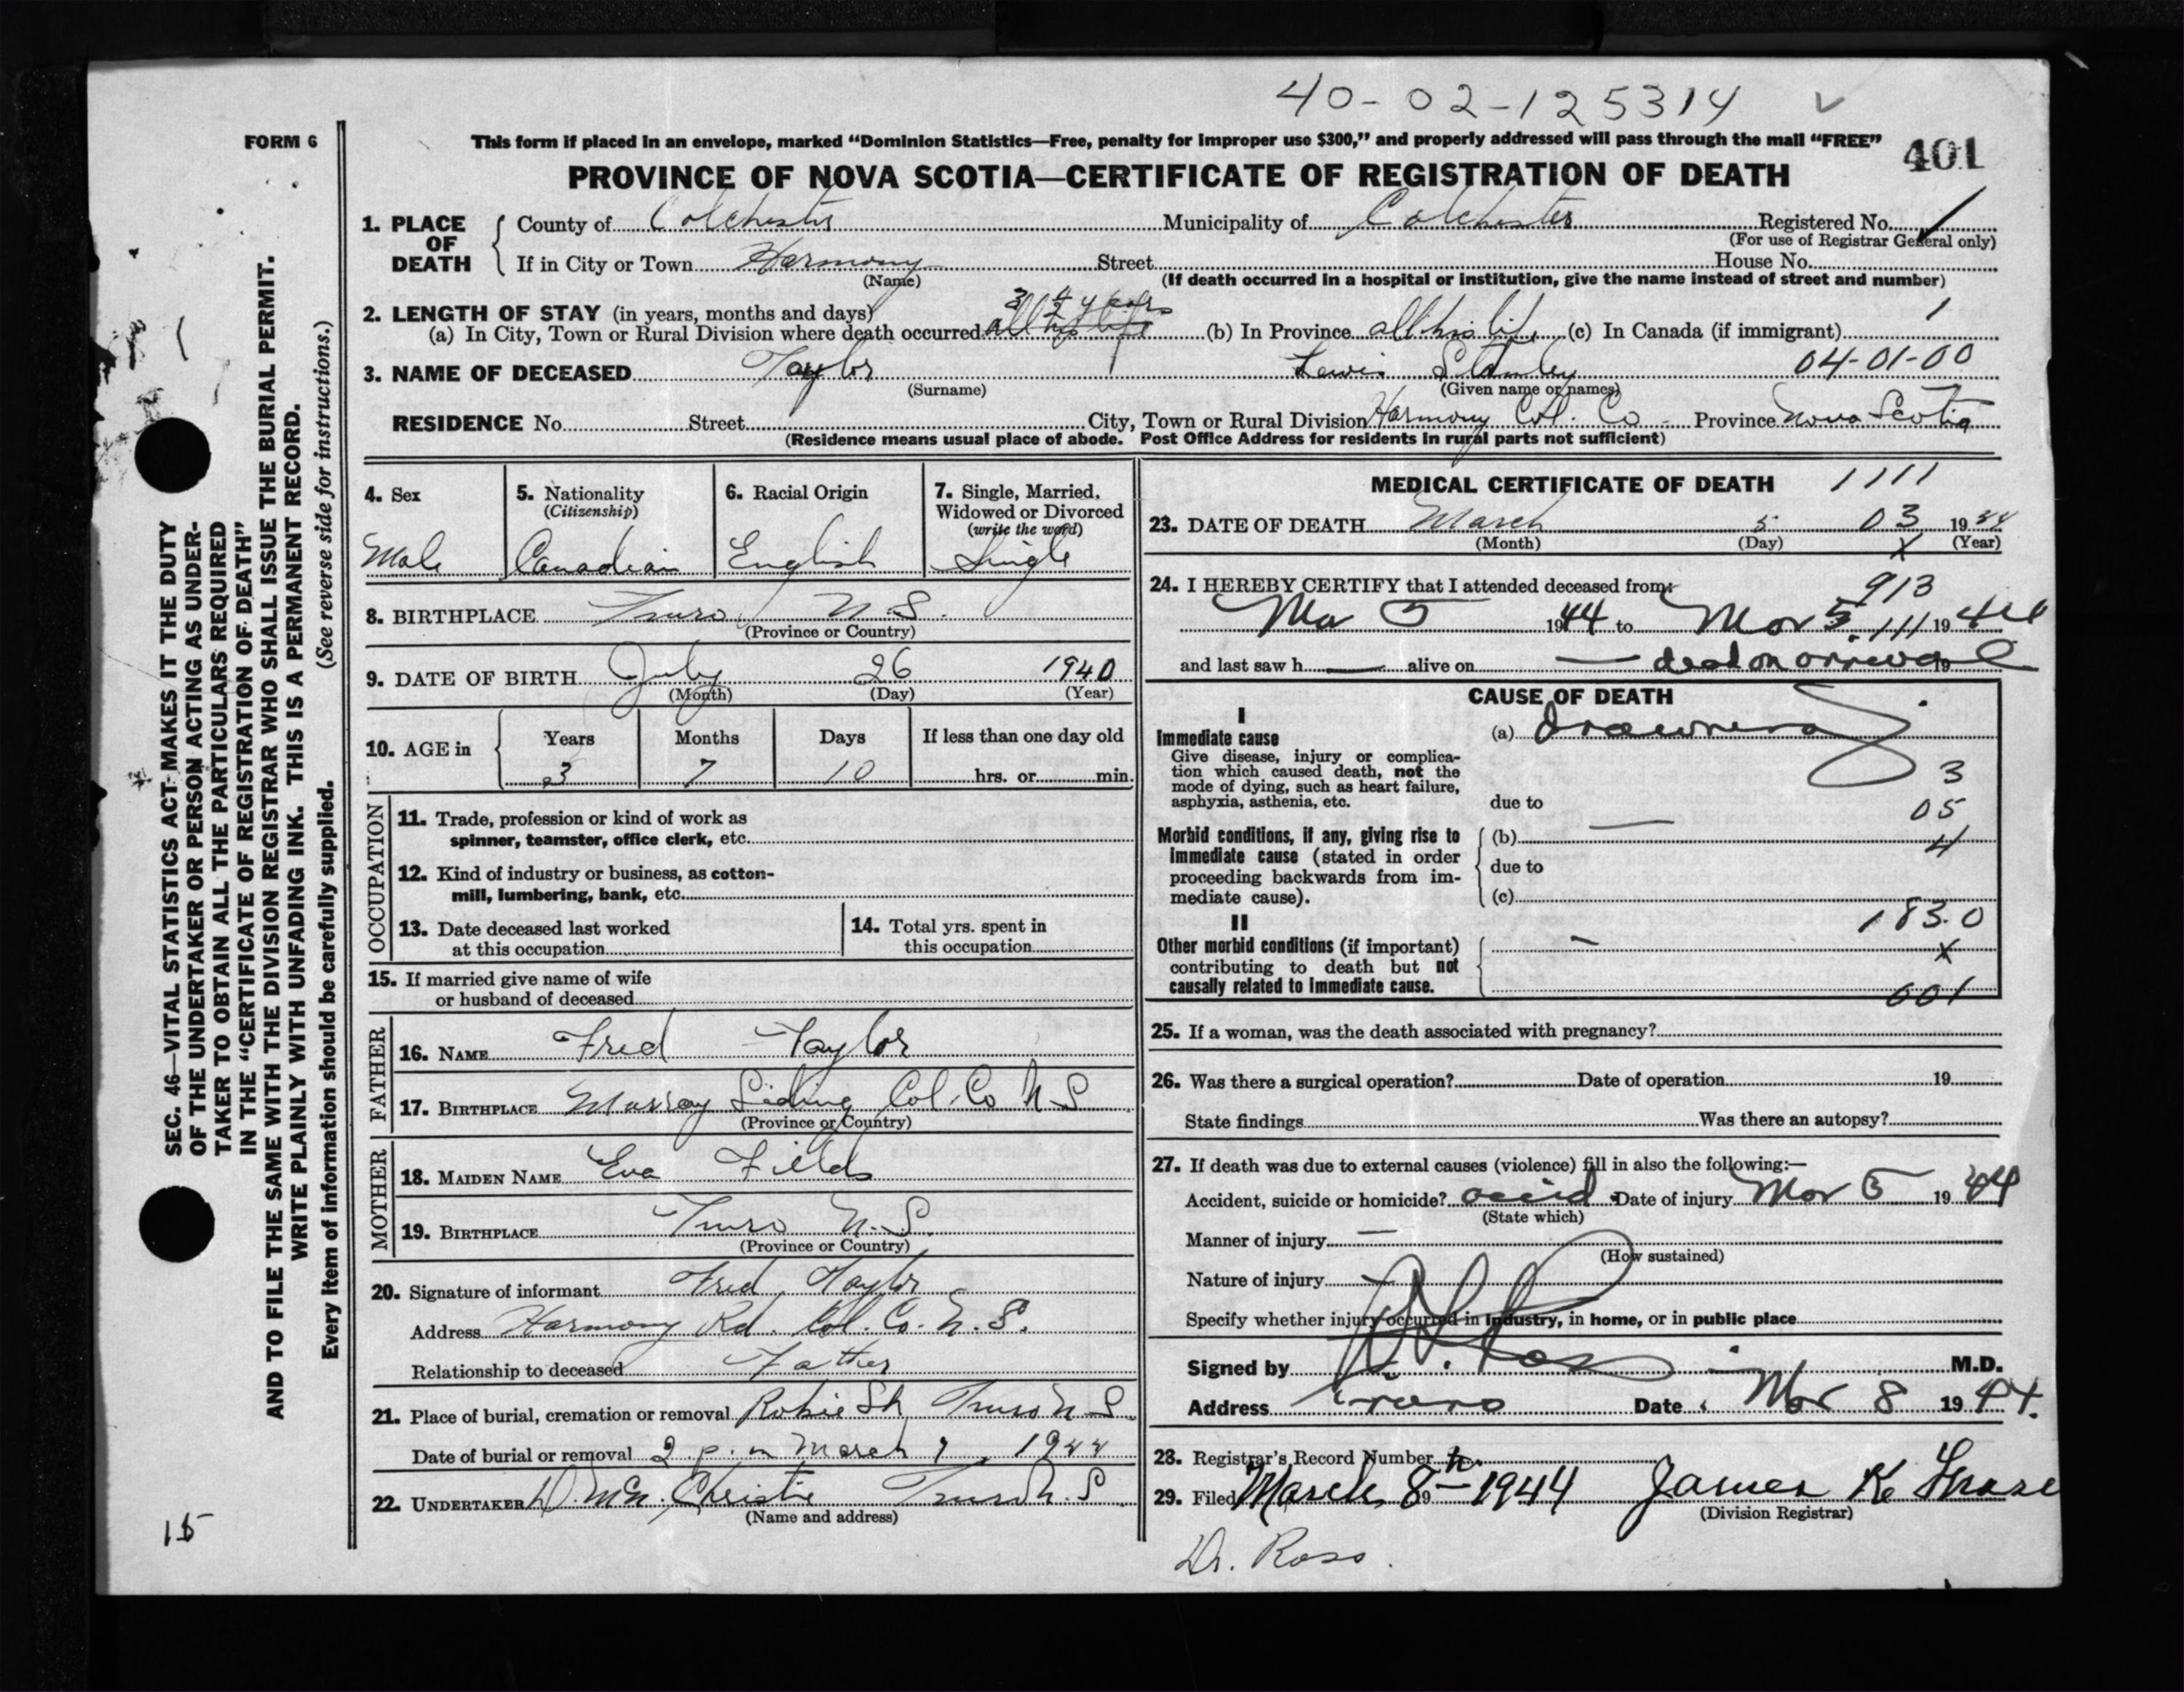 40-02-125314
FORM 6
This form if placed in an envelope, marked “Dominion Statistics—Free, penalty for improper use $300,” and properly addressed will pass through the mail “FREE”
401
PROVINCE OF NOVA SCOTIA—CERTIFICATE OF REGISTRATION OF DEATH
1. PLACE OF DEATH County of Colchester Municipality of Colchester Registered No.
(For use of Registrar General only)
If in City or Town Harmony Street House No.
(Name) (If death occurred in a hospital or institution, give the name instead of street and number)
2. LENGTH OF STAY (in years, months and days)
(a) In City, Town or Rural Division where death occurred all his life years (b) In Province all his life (c) In Canada (if immigrant)
3. NAME OF DECEASED Taylor Lewis Stanley 04-01-00
(Surname) (Given name or names)
RESIDENCE No. Street City, Town or Rural Division Harmony Col. Co Province Nova Scotia
(Residence means usual place of abode. Post Office Address for residents in rural parts not sufficient)
4. Sex 5. Nationality (Citizenship) 6. Racial Origin 7. Single, Married, Widowed or Divorced (write the word)
Male Canadian English Single
8. BIRTHPLACE Truro N.S.
(Province or Country)
9. DATE OF BIRTH July 26 1940
(Month) (Day) (Year)
10. AGE in Years Months Days If less than one day old
3 7 10 hrs. or min.
OCCUPATION
11. Trade, profession or kind of work as
spinner, teamster, office clerk, etc.
12. Kind of industry or business, as cotton-
mill, lumbering, bank, etc.
13. Date deceased last worked
at this occupation
14. Total yrs. spent in
this occupation
15. If married give name of wife
or husband of deceased
FATHER
16. NAME Fred Taylor
17. BIRTHPLACE Murray Siding Col. Co N S
(Province or Country)
MOTHER
18. MAIDEN NAME Eva Fields
19. BIRTHPLACE Truro N.S.
(Province or Country)
20. Signature of informant Fred Taylor
Address Harmony Rd. Col. Co. N. S.
Relationship to deceased Father
21. Place of burial, cremation or removal Robie St Truro N S
Date of burial or removal 2 p.m March 7, 1944
22. UNDERTAKER Christie Truro N.S
(Name and address)
MEDICAL CERTIFICATE OF DEATH 1111
23. DATE OF DEATH March 5 03 1944
(Month) (Day) (Year)
24. I HEREBY CERTIFY that I attended deceased from:
913
Mar 5 1944 to Mar 5 111 1944
and last saw h alive on dead on arrival 19
CAUSE OF DEATH
I
Immediate cause
Give disease, injury or complica-
tion which caused death, not the
mode of dying, such as heart failure,
asphyxia, asthenia, etc.
(a) drowning
3
due to
05
Morbid conditions, if any, giving rise to
immediate cause (stated in order
proceeding backwards from im-
mediate cause).
(b)
4
due to
(c)
183.0
II
Other morbid conditions (if important)
contributing to death but not
causally related to immediate cause.
X
001
25. If a woman, was the death associated with pregnancy?
26. Was there a surgical operation? Date of operation 19
State findings Was there an autopsy?
27. If death was due to external causes (violence) fill in also the following:—
Accident, suicide or homicide? accid Date of injury Mar 5 1944
(State which)
Manner of injury
(How sustained)
Nature of injury
Specify whether injury occurred in industry, in home, or in public place
Signed by Ross M.D.
Address Truro Date Mar 8 1944.
28. Registrar's Record Number
29. Filed March 8th 1944 James K
(Division Registrar)
Dr. Ross.
SEC. 46—VITAL STATISTICS ACT-MAKES IT THE DUTY
OF THE UNDERTAKER OR PERSON ACTING AS UNDER-
TAKER TO OBTAIN ALL THE PARTICULARS REQUIRED
IN THE “CERTIFICATE OF REGISTRATION OF DEATH”
AND TO FILE THE SAME WITH THE DIVISION REGISTRAR WHO SHALL ISSUE THE BURIAL PERMIT.
WRITE PLAINLY WITH UNFADING INK. THIS IS A PERMANENT RECORD.
Every item of information should be carefully supplied. (See reverse side for instructions.)
15